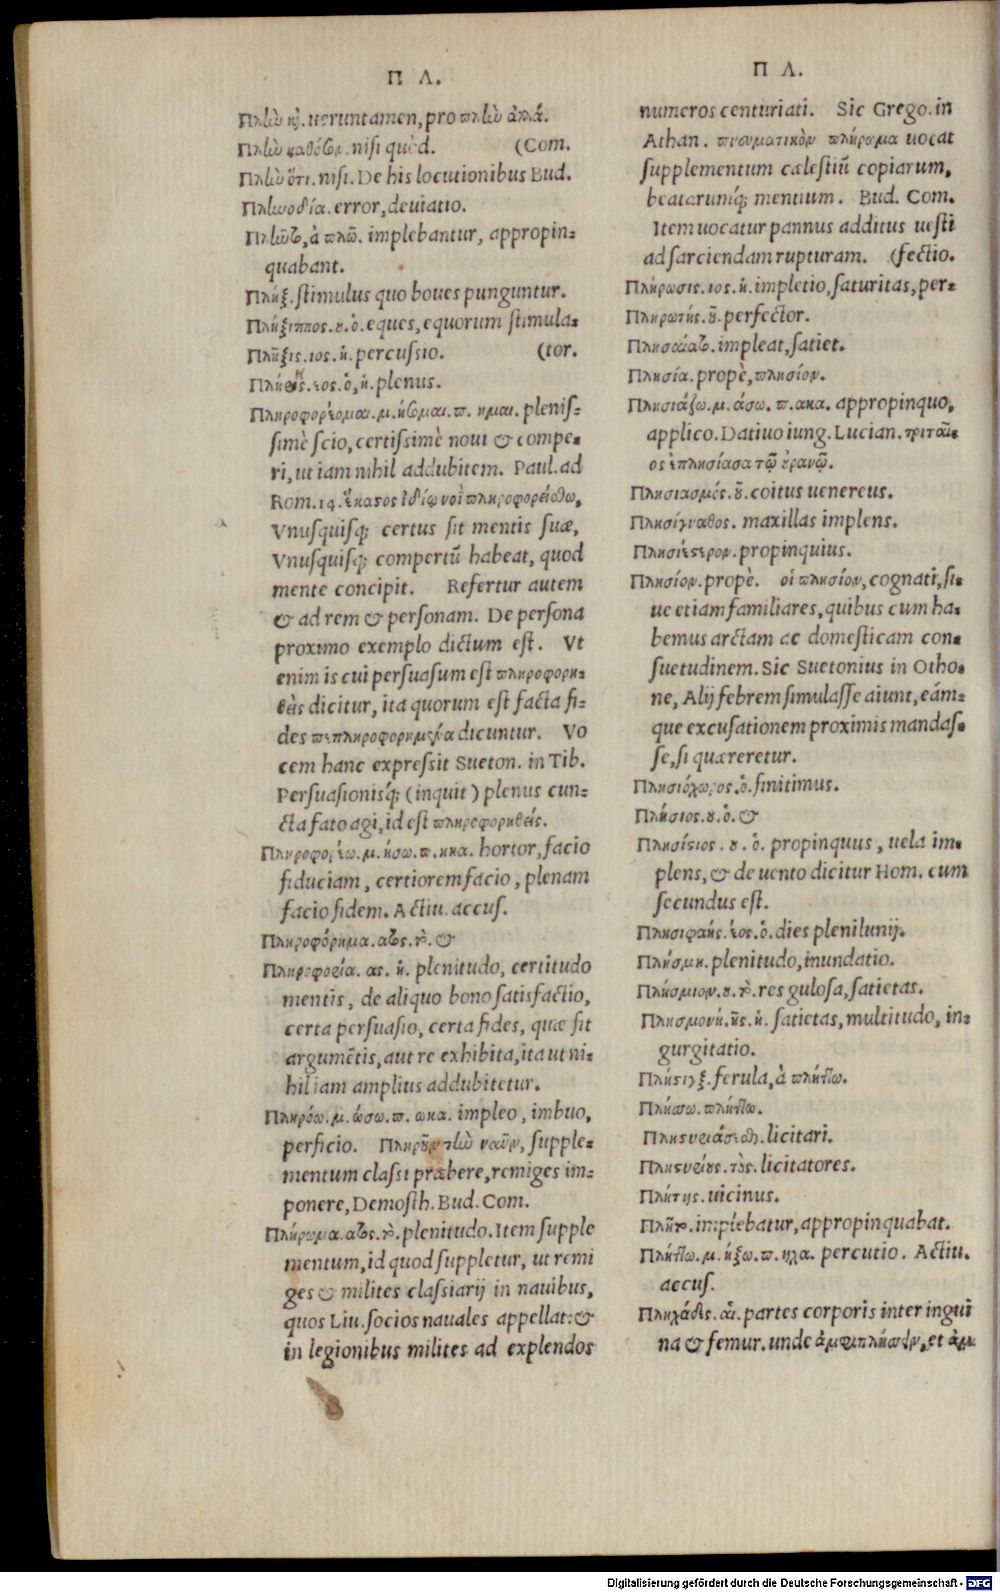 Π Λ.
Πλὴν καὶ. ueruntamen, pro πλὴν ἀλλά.
Πλὴν καθόσον. nisi quòd. (Com.
Πλὴν ὅτι. nisi. De his locutionibus Bud.
Πλανοδία. error, deuiatio.
implebantur, appropin-
quabant.
Πλήξ. stimulus quo boues punguntur.
Πλήξιππος. ου. ὁ. eques, equorum stimula-
Πλῆξις. ιος. ἡ. percussio. (tor.
Πλήρης. εος. ὁ, ἡ. plenus.
Πληροφορέομαι. μ. ήσομαι. π. ημαι. plenis-
simè scio, certissimè noui & compe-
ri, ut iam nihil addubitem. Paul. ad
Rom. 14. ἕκαστος ἰδίῳ νοῒ πληροφορείσθω,
Vnusquisq; certus sit mentis suæ,
Vnusquisq; compertū habeat, quod
mente concipit. Refertur autem
& ad rem & personam. De persona
proximo exemplo dictum est. Vt
enim is cui persuasum est πληροφορη-
θεὶς dicitur, ita quorum est facta fi-
des πεπληροφορημένα dicuntur. Vo
cem hanc expressit Sueton. in Tib.
Persuasionisq́; (inquit) plenus cun-
cta fato agi, id est πληροφορηθείς.
Πληροφορέω. μ. ήσω. π. ηκα. hortor, facio
fiduciam, certiorem facio, plenam
facio fidem. Actiu. accus.
Πληροφόρημα. ατος. τὸ. &
Πληροφορία. ας. ἡ. plenitudo, certitudo
mentis, de aliquo bono satisfactio,
certa persuasio, certa fides, quæ fit
argumētis, aut re exhibita, ita ut ni-
hil iam amplius addubitetur.
Πληρόω. μ. ώσω. π. ωκα. impleo, imbuo,
perficio. Πληροῦν τὴν ναῦν, supple-
mentum classi præbere, remiges im-
ponere, Demosth. Bud. Com.
Πλήρωμα. ατος. τὸ. plenitudo. Item supple
mentum, id quod suppletur, ut remi
ges & milites classiarij in nauibus,
quos Liu. socios nauales appellat: &
in legionibus milites ad explendos
Π Λ.
numeros centuriati. Sic Grego. in
Athan. πνευματικὸν πλήρωμα uocat
supplementum cælestiū copiarum,
beatarumq́; mentium. Bud. Com.
Item uocatur pannus additus uesti
ad sarciendam rupturam. (fectio.
Πλήρωσις. ιος. ἡ. impletio, saturitas, per-
Πληρωτής. οῦ. perfector.
impleat, satiet.
Πλησία. propè, πλησίον.
Πλησιάζω. μ. άσω. π. ακα. appropinquo,
applico. Datiuo iung. Lucian. τριταῖ-
ος ἐπλησίασα τῷ οὐρανῷ.
Πλησιασμός. οῦ. coitus uenereus.
Πλησίγναθος. maxillas implens.
Πλησιέστερον. propinquius.
Πλησίον. propè. οἱ πλησίον, cognati, si-
ue etiam familiares, quibus cum ha-
bemus arctam ac domesticam con-
suetudinem. Sic Suetonius in Otho-
ne, Alij febrem simulasse aiunt, eám-
que excusationem proximis mandas-
se, si quæreretur.
Πλησιόχωρος. ὁ. finitimus.
Πλήσιος. ου. ὁ. &
Πλησίστιος. ου. ὁ. propinquus, uela im-
plens, & de uento dicitur Hom. cum
secundus est.
Πλησιφαής. έος. ὁ. dies plenilunij.
Πλήσμη. plenitudo, inundatio.
Πλήσμιον. ου. τὸ. res gulosa, satietas.
Πλησμονή. ῆς. ἡ. satietas, multitudo, in-
gurgitatio.
ferula, à πλήττω.
Πλήσσω. πλήττω.
licitari.
licitatores.
Πλήτης. uicinus.
Πλῆτο. implebatur, appropinquabat.
Πλήττω. μ. ήξω. π. ηχα. percutio. Actiu.
accus.
Πληχάδες. αἱ. partes corporis inter ingui
na & femur. unde et ἀμ-
Digitalisierung gefördert durch die Deutsche Forschungsgemeinschaft - DFG